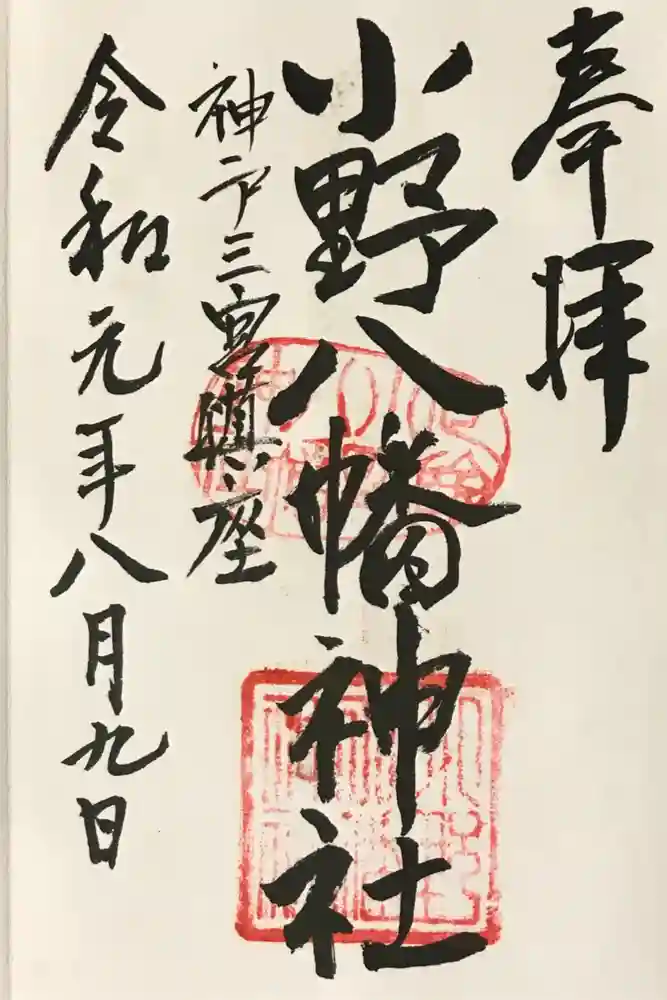 奉拝
小野八幡神社
神戸三宮鎮座
令和元年八月九日